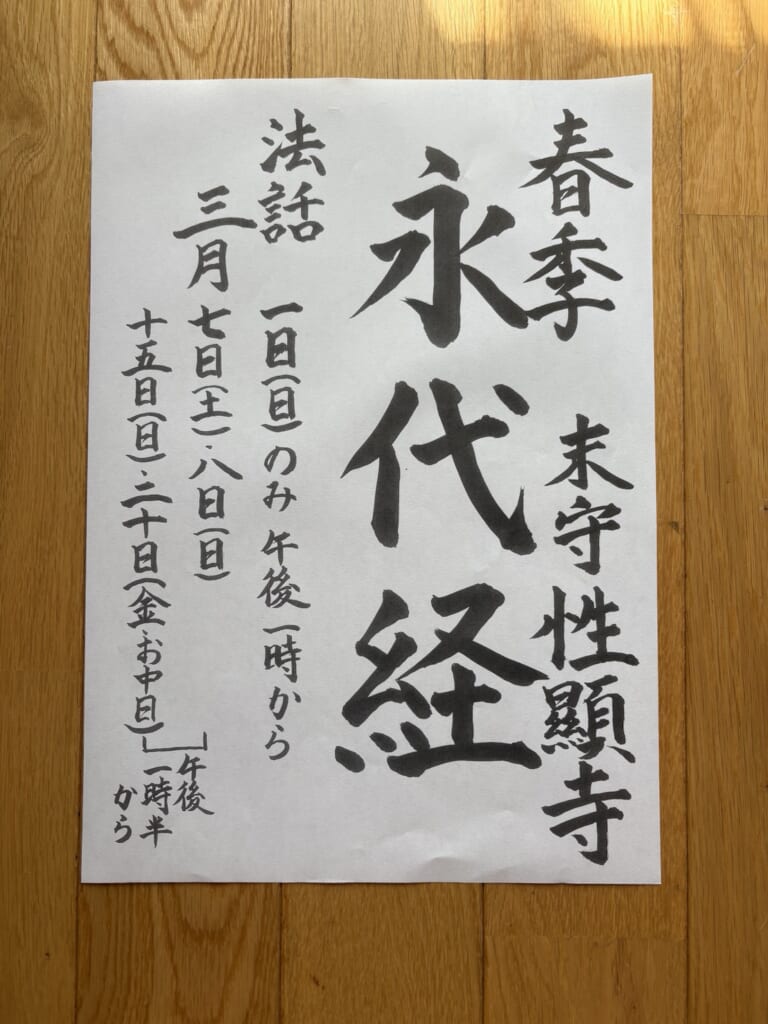 春季 末守性顯寺
永代経
法話 一日(日)のみ午後一時から
三月 七日(土)・八日(日)
十五日(日)・二十日(金・お中日)
午後
一時半
から